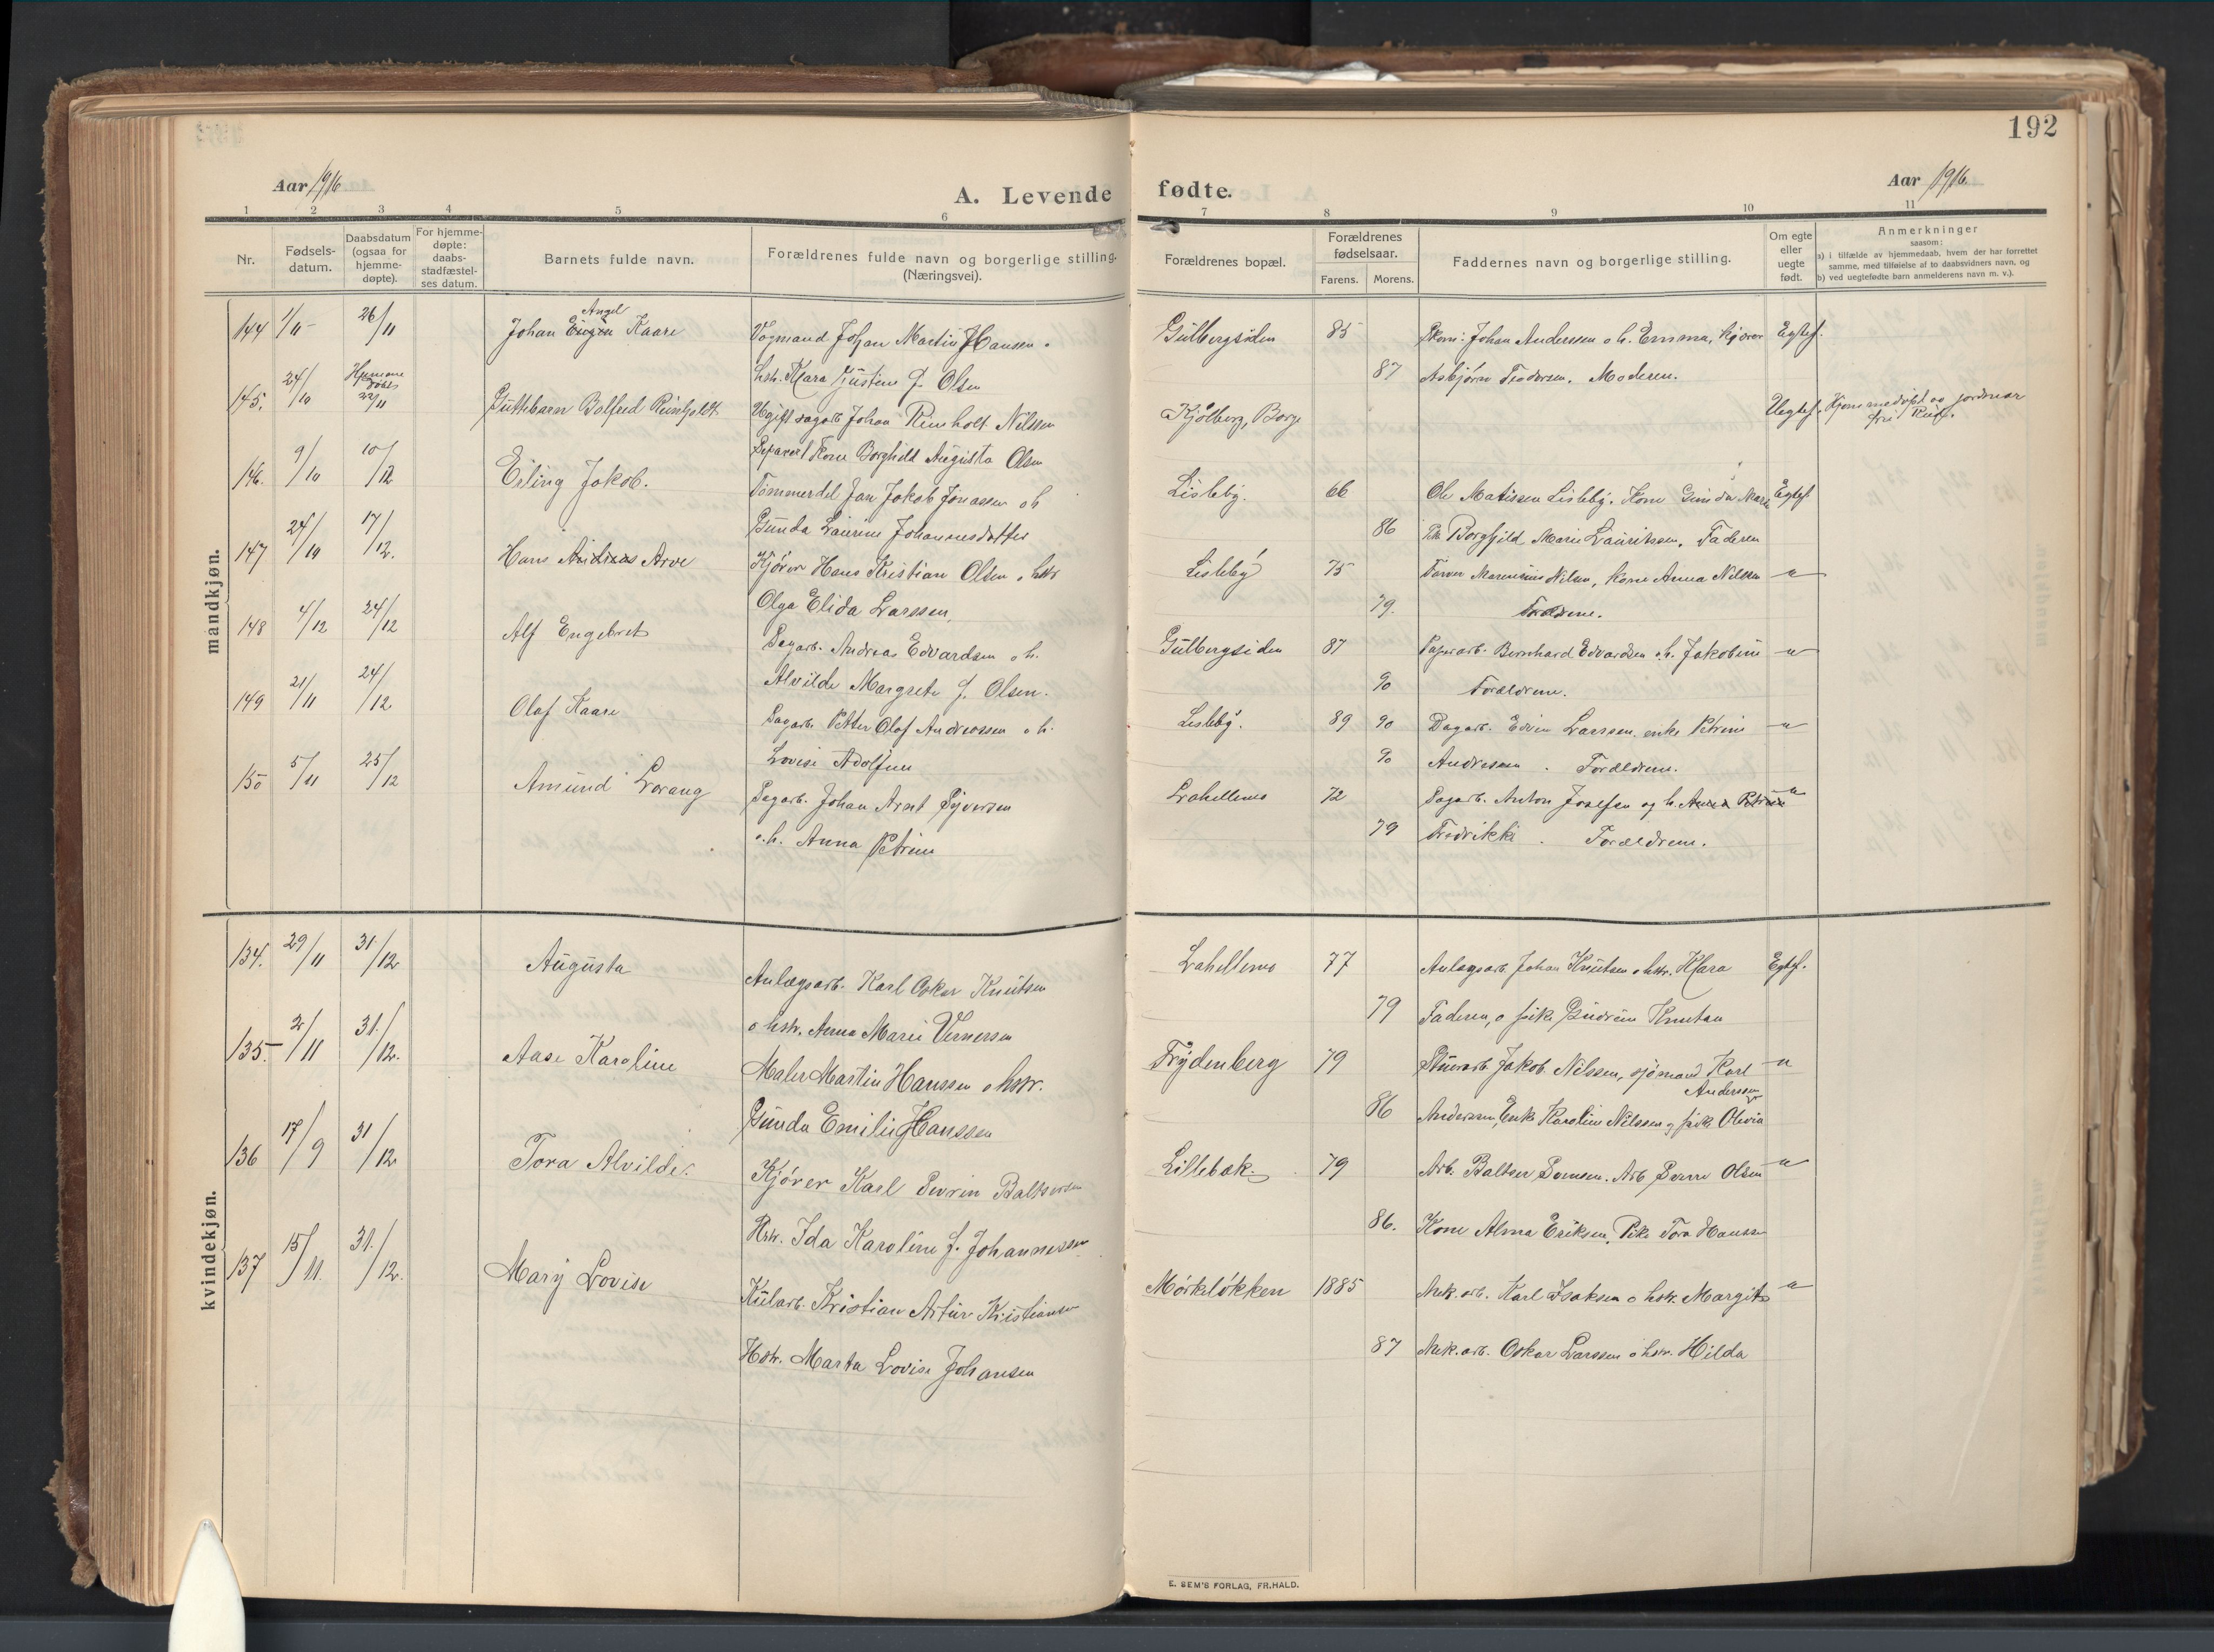 192
Aar 1916
A. Levende fødte.
Aar 1916
1 2 3 4 5 6 7 8 9 10 11
Nr.
Fødsels-
datum.
Daabsdatum
(ogsaa for
hjemme-
døpte).
For hjemme-
døpte:
daabs-
stadfæstel-
ses datum.
Barnets fulde navn.
Forældrenes fulde navn og borgerlige stilling.
(Næringsvei).
Forældrenes bopæl.
Forældrenes
fødselsaar.
Farens. Morens.
Faddernes navn og borgerlige stilling.
Om egte
eller
uegte
født.
Anmerkninger
saasom:
a) i tilfælde av hjemmedaab, hvem der har forrettet
samme, med tilføielse af to daabsvidners navn, og
b) ved uegtefødte barn anmelderens navn m. v.).
mandkjøn.
144 1/11 26/11 Johan Angel Kaare Vognmand Johan Martin Hansen o Gulbergsiden 85 Johan Anderssen o h. Emma, kjører Egtef.
hstr. Klara Justine J. Olsen 87 Asbjørn Teodorsen. Moderen.
145. 24/10 Hjemme døbt 22/11 Guttebarn Bolfred Reinholdt Ugift sagarb Johan Reinholt Nilssen Kjølberg, Borge Uegtef. Hjemmedøpt av jordmor
fru
Separert Kone Borghild Augusta Olsen
146. 9/10 10/12 Erling Jakob. Tømmerdel Jan Jakob Jonassen o h Lisleby. 66 Ole Matissen Lisleby. Kone Gunda Marie Egtef.
Gunda Laurine Johannesdatter 86 Borghild Marie Lauritssen. Faderen
147 24/10 17/12. Hans Andreas Arve Kjører Hans Kristian Olsen o hstr Lisleby 75 Marensius Nilsen, kone Anna Nilssen -"-
Olga Elida Larssen, 79. Forældrene.
148 4/12 24/12 Alf Engebret Sagarb. Andreas Edvardsen o h. Gulbergsiden 87 Papirarb. Bernhard Edvardsen o h. Jakobine -"-
Alvilde Margrete J. Olsen. 90 Forældrene.
149 21/11 24/12 Olaf Kaare Sagarb. Petter Olaf Andreassen o h. Lisleby. 89 90 Dagarb. Edvin Larssen, enke Petrine -"-
Lovise Adolfine 90 Andresen. Forældrene.
150 5/11 25/12 Amund Lorang Sagarb. Johan Arnt Syversen Lahellemo 72 Sagarb. Anton Josefsen og h. Anna Petrine -"-
o. h. Anna Petrine 79 Fredrikke. Forældrene.
kvindekjøn.
134. 29/11 31/12 Augusta Anlægsarb. Karl Oskar Knutsen Lahellemo 77 Anlægsarb. Johan Knutsen o hstr. Klara Egtef.
o hstr. Anna Marie Vernersen 79 Faderen, o pike Gudrun Knutsen
135. 2/11 31./12. Aase Karoline Maler Martin Hanssen o hstr. Frydenberg 79 Stuerarb. Jakob Nilssen, sjømand Karl -"-
Gunda Emilie Hanssen 86 Anderssen, Enke Karoline Nilssen og pike Olivia Anderssen
136 17/9 31/12 Tora Alvilde. Kjører Karl Severin Baltsersen Lillebæk. 79 Arb. Baltser Svensen. Arb Sverre Olsen -"-
Hstr. Ida Karoline J. Johannessen 86. Kone Alma Eriksen. Pike Tora Hanssen
137 15/11. 31./12. Mary Lovise Kularb. Kristian Artur Kristiansen Mørkløkken 1885 Mek. arb. Karl Isaksen o hstr. Margit -"-
Hstr. Marta Lovise Johansen 87 Mek. arb. Oskar Larssen o hstr. Hilda
E. SEM'S FORLAG, FR.HALD.